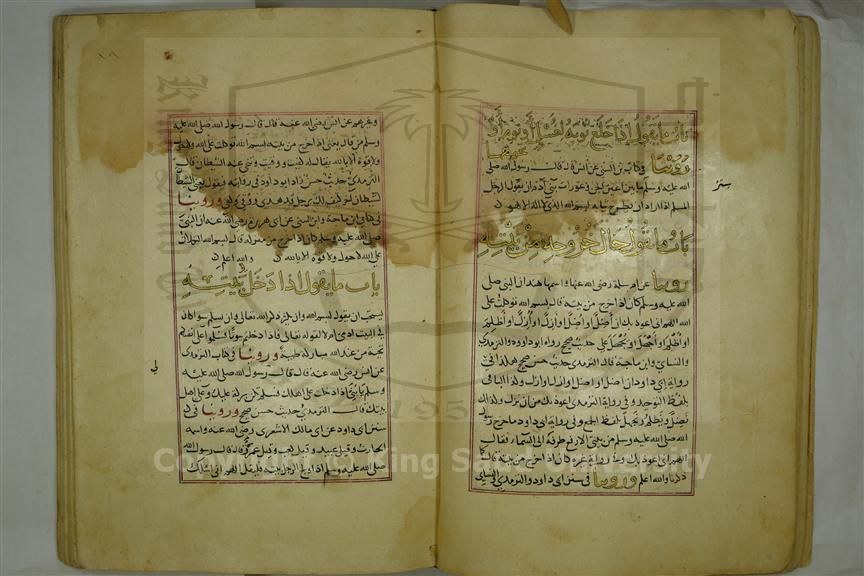 باب ما يقول اذا خلع ثوبه لغسل او نوم او
نحوهما
روينا في كتاب ابن السني عن انس قال قال رسول الله صلى
الله عليه وسلم ما بين اعين الجن وعورات بني آدم ان يقول الرجل
المسلم اذا اراد ان يطرح ثيابه بسم الله الذي لا اله الا هو
ستر
باب ما يقول حال خروجه من بيته
روينا عن ام سلمة رضي الله عنها واسمها هند ان النبي صلى
الله عليه وسلم كان اذا خرج من بيته قال بسم الله توكلت على
الله اللهم اني اعوذ بك ان أضل او أضل او أزل او أزل او أظلم
او أظلم او أجهل او يجهل علي حديث صحيح رواه ابو داود والترمذي
والنسائي وابن ماجة قال الترمذي حديث حسن صحيح هكذا في
رواية ابي داود ان اضل او اضل او ازل او ازل وكذا الباقي
بلفظ التوحيد وفي رواية الترمذي اعوذ بك من ان نزل وكذلك
نضل ونظلم ونجهل بلفظ الجمع وفي رواية ابي داود ما خرج رسول
الله صلى الله عليه وسلم من بيتي الا رفع طرفه الى السماء فقال
اللهم اني اعوذ بك وفي رواية غيره كان اذا خرج من بيته قال كما
ذكرنا والله اعلم وروينا في سنن ابي داود والترمذي والنسائي
وغيرهم عن انس رضي الله عنه قال قال رسول الله صلى الله عليه
وسلم من قال يعني اذا خرج من بيته بسم الله توكلت على الله ولا حول
ولا قوة الا بالله يقال له كفيت ووقيت وتنحى عنه الشيطان قال
الترمذي حديث حسن زاد ابو داود في روايته فيقول يعني الشيطان
لشيطان اخر كيف لك برجل قد هدي وكفي ووقي وروينا
في كتابي ابن ماجة وابن السني عن ابي هريرة رضي الله عنه ان النبي
صلى الله عليه وسلم كان اذا خرج من منزله قال بسم الله التكلان
على الله لا حول ولا قوة الا بالله والله اعلم
باب ما يقول اذا دخل بيته
يستحب ان يقول بسم الله وان يكثر ذكر الله تعالى وان يسلم سوا كان
في البيت ادمي ام لا لقوله تعالى فاذا دخلتم بيوتا فسلموا على انفسكم
تحية من عند الله مباركة طيبة وروينا في كتاب الترمذي
عن انس رضي الله عنه قال قال لي رسول الله صلى الله عليه
وسلم يا بني اذا دخلت على اهلك فسلم تكن بركة عليك وعلى اهل
بيتك قال الترمذي حديث حسن صحيح وروينا في
سنن ابي داود عن ابي مالك الاشعري رضي الله عنه واسمه
الحارث وقيل عبيد وقيل كعب وقيل عمرو قال قال رسول الله
صلى الله عليه وسلم اذا ولج الرجل بيته فليقل اللهم اني اسالك
لي